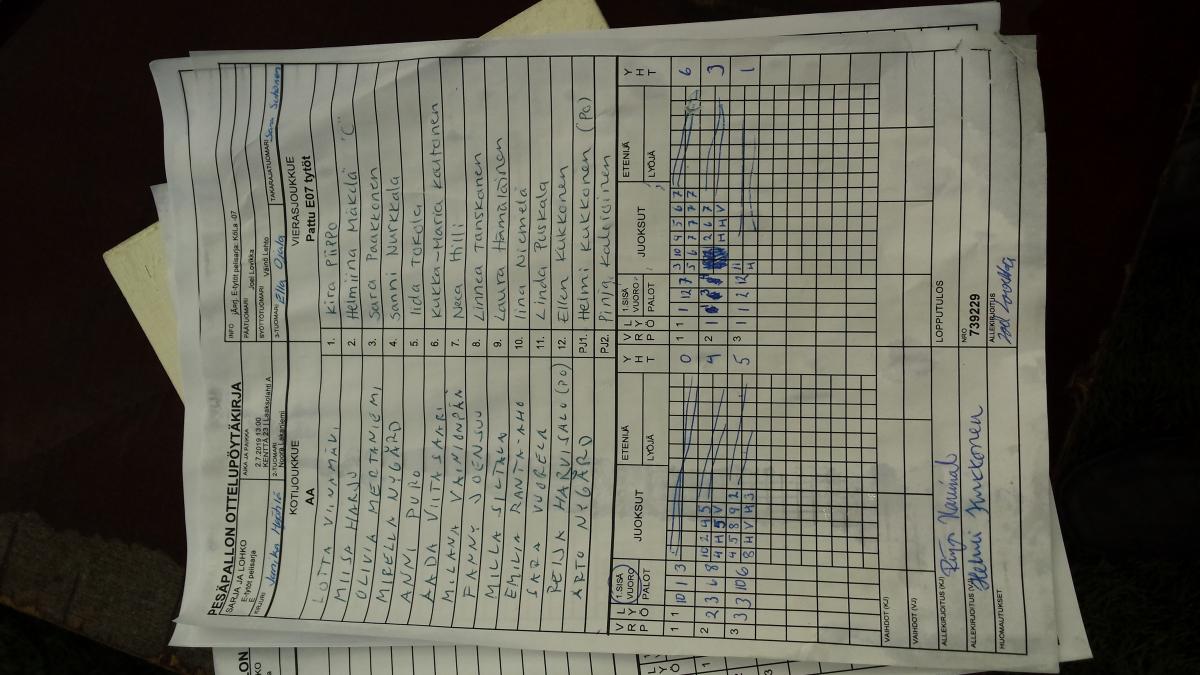 PESÄPALLON OTTELUPÖYTÄKIRJA
SARJA JA LOHKO
E-tytöt pelisarja
E
AIKA JA PAIKKA
2.7.2019 13:00
KENTTÄ 23 | Laaksolahti A
INFO
järj. E-tytöt pelisarja: KoLa -07
PÄÄTUOMARI
Joel Lovikka
SYÖTTÖTUOMARI
Väinö Lehto
KIRJURI
2-TUOMARI
Noora Lakaniemi
3-TUOMARI
Ella Ojala
TAKARAJATUOMARI
KOTIJOUKKUE
AA
VIERASJOUKKUE
Pattu E07 tytöt
LOTTA VIINAMÄKI
1. Kira Piippo
MIISA HARJU
2. Helmiina Mäkelä "C"
OLIVIA MERTANIEMI
3. Sara Paakkonen
MIRELLA NYGÅRD
4. Sanni Nurkkala
ANNI PURO
5. Iida Tokola
AADA VIITASAARI
6. Kukka-Maria Kaatonen
MILANA VAINIONPÄÄ
7. Neea Hilli
FANNY JOENSUU
8. Linnea Tanskanen
MILLA SILTALA
9. Laura Hämäläinen
EMILIA RANTA-AHO
10. Iina Niemelä
SARA VUORELA
11. Linda Puskala
PEIJA HARVISALO (PO)
12. Ellen Kukkonen
ARTO NYGÅRD
PJ1. Helmi Kukkonen (PO)
PJ2.
V R P
L Y Ö
1.SISÄ VUORO
PALOT
JUOKSUT
ETENIJÄ
LYÖJÄ
Y H T
V R P
L Y Ö
1.SISÄ VUORO
PALOT
JUOKSUT
ETENIJÄ
LYÖJÄ
Y H T
1 1 10 1 3 0
1 1 1 12 7 3 10 4 5 6 7 6
5 6 7 7 7 7
2 2 3 6 8 10 2 4 5 4
4 H 5 V
2 1 2 6 7 3
H H V
3 3 3 10 6 4 5 8 9 2 5
8 H V H 3
3 1 1 2 12 11 1
H
VAIHDOT (KJ)
VAIHDOT (VJ)
ALLEKIRJOITUS (KJ)
LOPPUTULOS
ALLEKIRJOITUS (VJ)
Helmi Kukkonen
NRO
739229
HUOMAUTUKSET
ALLEKIRJOITUS